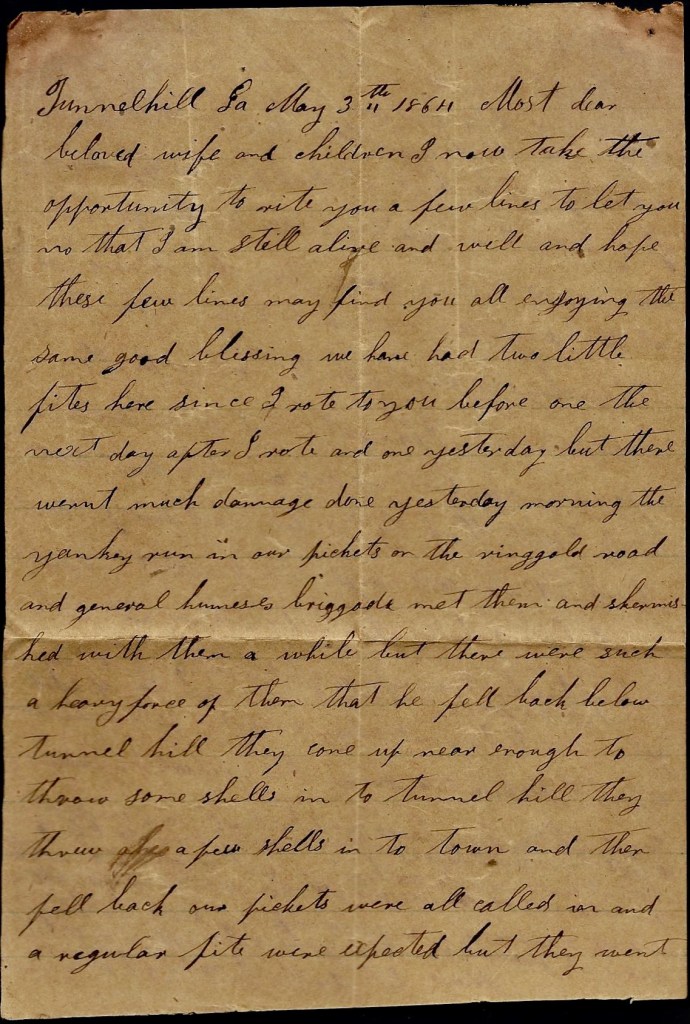 Tunnelhill Ga May 3th 1864 Most dear
beloved wife and children I now take the
opportunity to rite you a few lines to let you
no that I am still alive and well and hope
these few lines may find you all enjoying the
same good blessing we have had two little
fites here since I rote to you before one the
next day after I rote and one yesterday but there
wernt much damage done yesterday morning the
yankey run in our pickets on the ringgold road
and general humeses briggade met them and skermis
hed with them a while but there were such
a heavy force of them that he fell back below
tunnel hill they come up near enough to
throw some shells in to tunnel hill they
threw a few shells in to town and then
fell back our pickets were all called in and
a regular fite were expected but they went